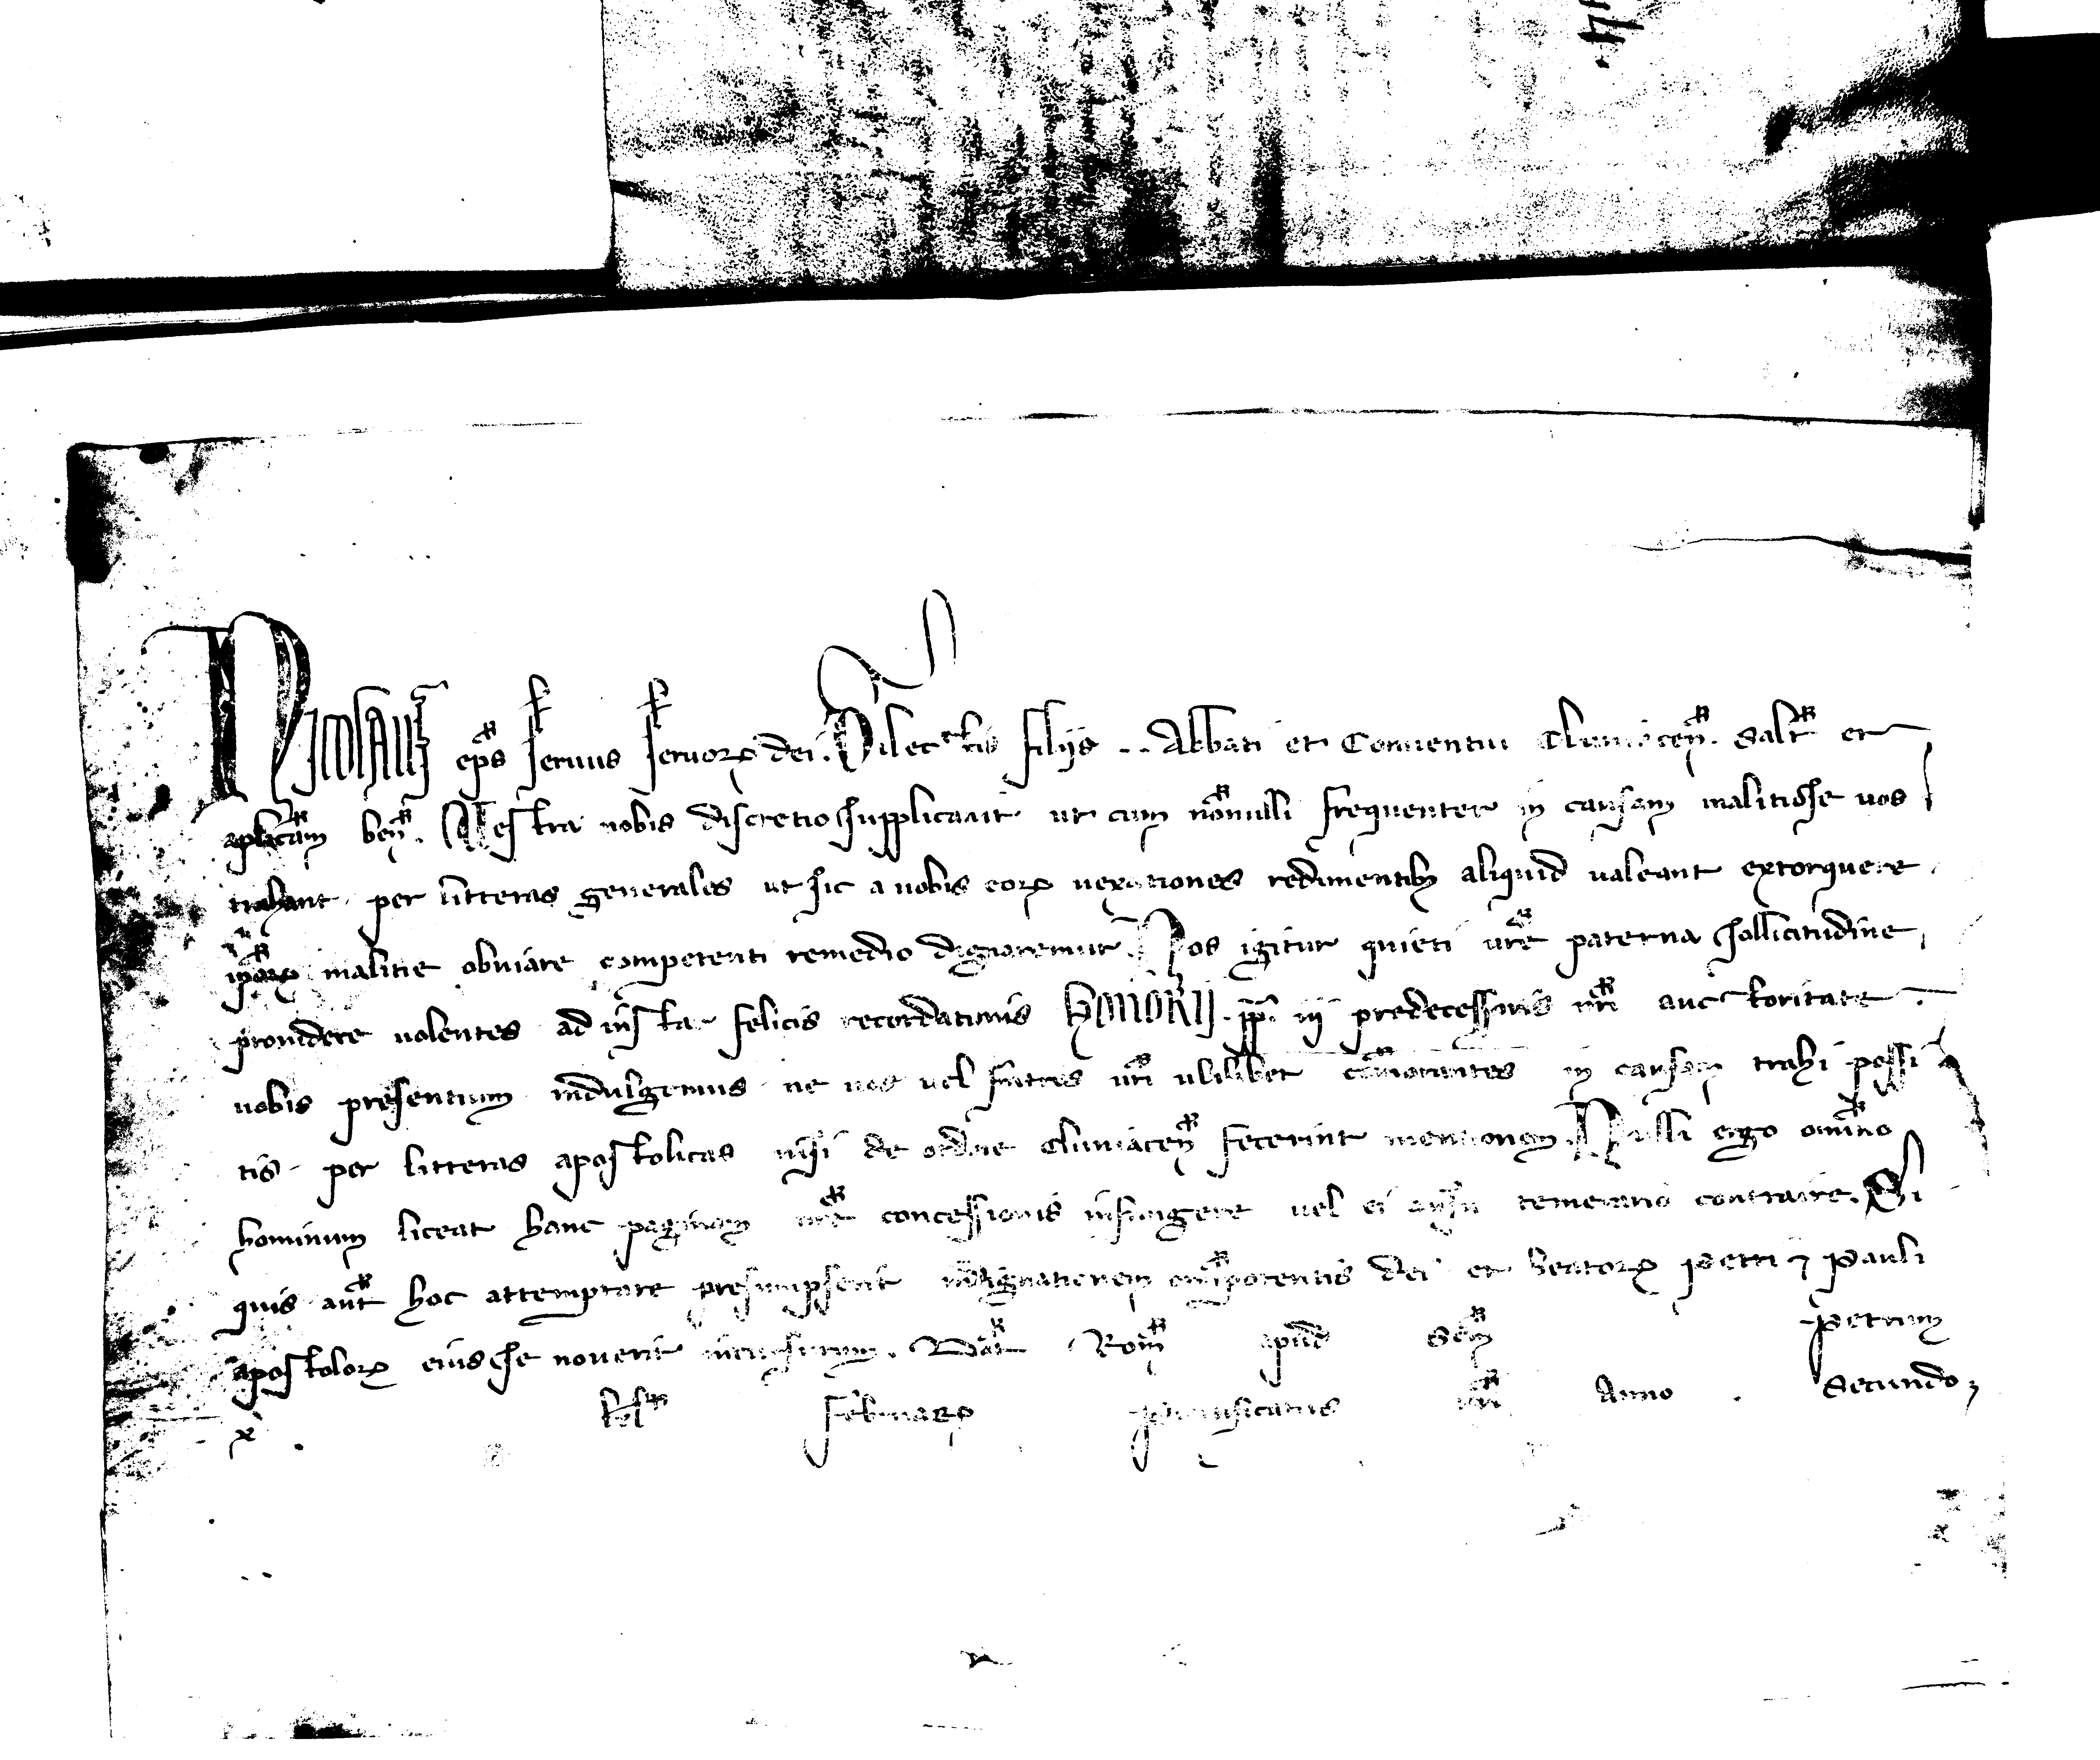 Nicolaus ep̄s seruus seruoꝝ dei. Dilectis filijs .. Abbati et Conuentui Cluniaceñ. Salt̄ et
apl̄icam beñ. Uestra nobis discretio supplicauit ut cum nōnulli frequenter in causam malitiose uos
trahant per litteras generales ut sic a uobis eoꝝ uexationes redimentibꝫ aliquid ualeant extorquere
ip̄oꝝ malitie obuiare competenti remedio dignaremur. Nos igitur quieti ur̄e paterna sollicitudine
prouidere uolentes ad instar felicis recordationis Honorij .pp̄. iij predecessoris nr̄i auctoritate
uobis presentium indulgemus ne uos uel fratres ur̄i ulilibet cōmorantes in causam trahi possi
tis per litteras apostolicas nisi de ordine Cluniaceñ fecerint mentionem. Nulli ergo omīno
hominum liceat hanc paginam nr̄e concessionis infringere uel ei ausu temerario contraire. Si
quis aut̄ hoc attemptare presumpserit indignationem om̄ipotentis dei et beatoꝝ Petri ⁊ Pauli
apostoloꝝ eius se nouerit incursurum. Dat̄ Rom̄ apud Scm̄ Petrum
x kl̄ Februaꝝ Pontificatus nr̄i Anno Secundo